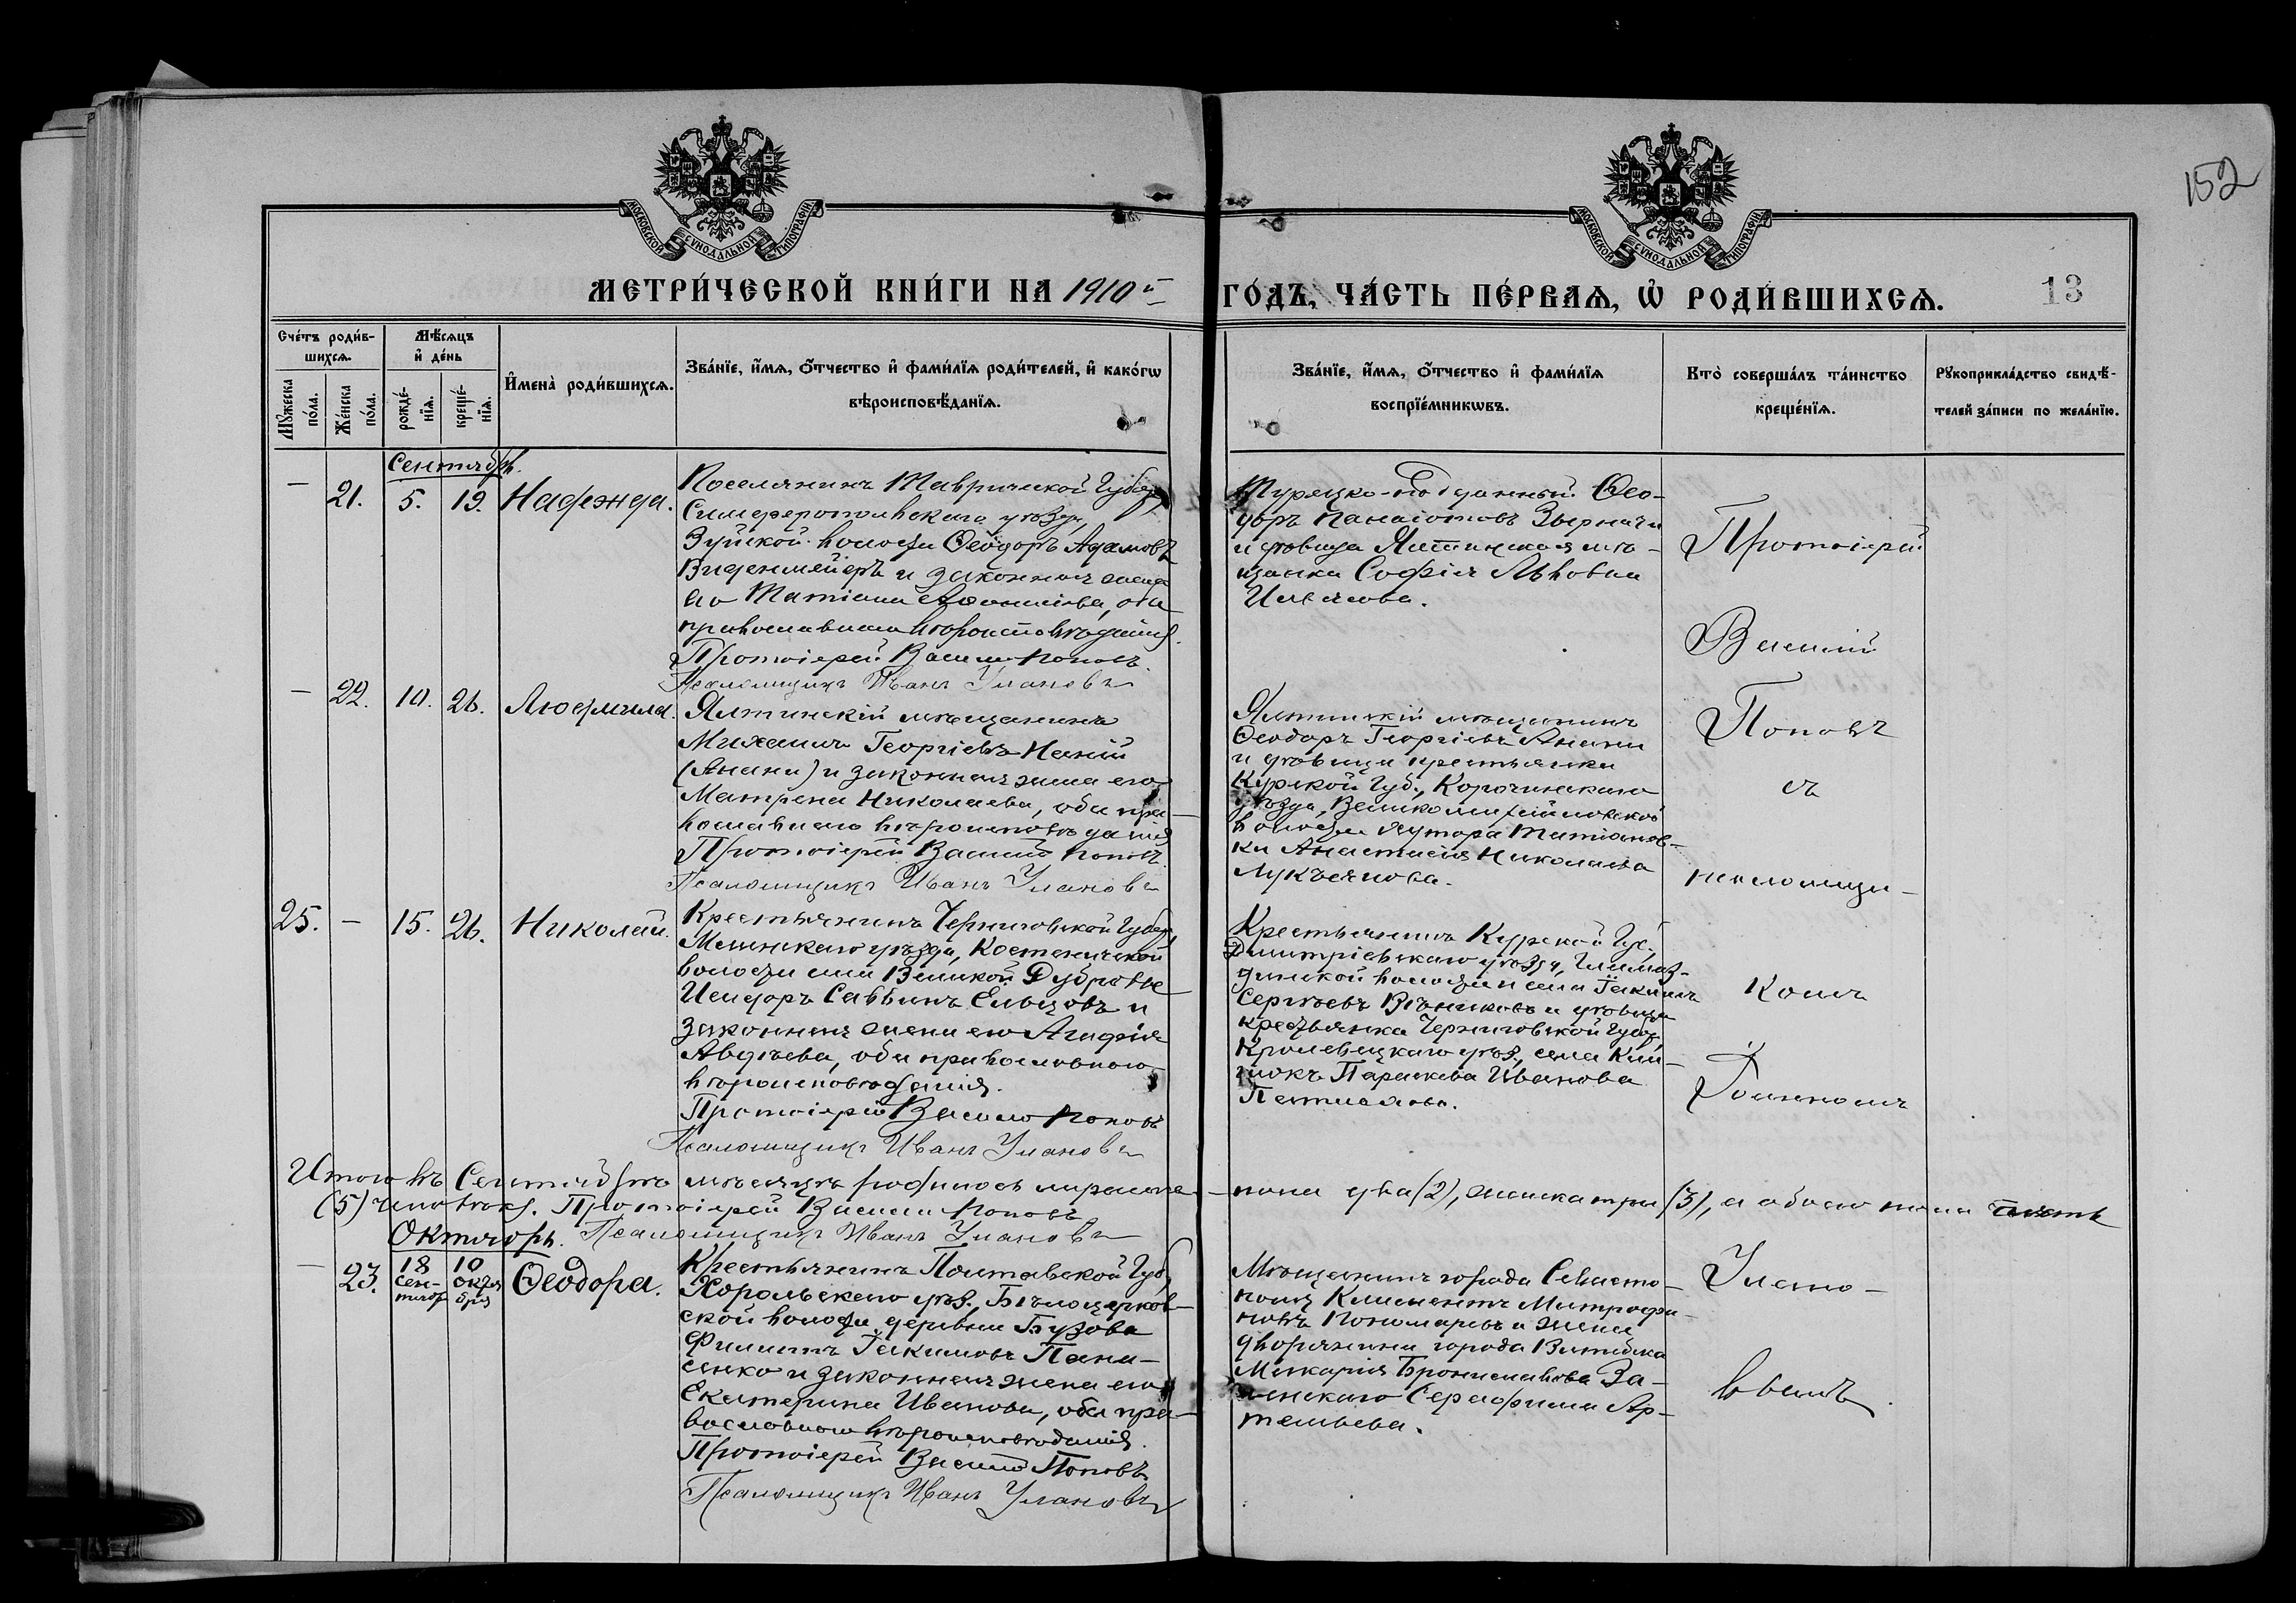 152
МОСКОВСКОЙ СѴНОДАЛЬНОЙ ТИПОГРАФІИ
МОСКОВСКОЙ СѴНОДАЛЬНОЙ ТИПОГРАФІИ
МЕТРИ́ЧЕСКОЙ КНИ́ГИ НА 1910й ГО́ДЪ, ЧА́СТЬ ПЕ́РВАѦ, Ѡ҆ РОДИ́ВШИХСѦ.
13
Сче́тъ роди́в-
шихсѧ.
Мꙋ́жеска по́ла.
Же́нска по́ла.
Мѣ́сѧцъ
и҆ де́нь
рожде́-
нїѧ.
креще́-
нїѧ.
И҆мена̀ роди́вшихсѧ.
Зва́нїе, и҆́мѧ, ѻ҆́тчество и҆ фами́лїѧ роди́телей, и҆ како́гѡ
вѣроисповѣ́данїѧ.
Зва́нїе, и҆́мѧ, ѻ҆́тчество и҆ фами́лїѧ
воспрїе́мникѡвъ.
Кто̀ соверша́лъ та́инство
креще́нїѧ.
Рꙋкоприкла́дство свидѣ́-
телей за́писи по жела́нїю.
Сентябрь.
— 21. 5. 19. Надежда.
Поселянинъ Таврической Губер.
Симферопольскаго уѣзда,
Зуйской волости Ѳеодоръ Адамовъ
и законная жена
его Татіана, оба
православнаго вѣроисповѣданія.
Протоіерей Василій Поповъ.
Псаломщикъ Иванъ Улановъ
Турецко-подданный Ѳео-
доръ Панаіотовъ
и дѣвица Ялтинская мѣ-
щанка Софія Львовна
— 22. 10. 26. Людмила.
Ялтинскій мѣщанинъ
Михаилъ Георгіевъ Наній
(Анани) и законная жена его
Матрена Николаева, оба пра-
вославнаго вѣроисповѣданія
Протоіерей Василій Поповъ.
Псаломщикъ Иванъ Улановъ
Ялтинскій мѣщанинъ
Ѳеодоръ Георгіевъ Анани
и дѣвица крестьянка
Курской Губ., Корочанскаго
уѣзда, Велико-Михайловской
волости хутора Татіанов-
ки Анастасія Николаева
Лукьянова.
25. — 15. 26. Николай.
Крестьянинъ Черниговской Губер.
Мглинскаго уѣзда, Костеничской
волости села Великой Дубровы
Исидоръ Саввинъ Ельцовъ и
законная жена его Агафія
Авдѣева, оба православнаго
вѣроисповѣданія.
Протоіерей Василій Поповъ
Псаломщикъ Иванъ Улановъ
Крестьянинъ Курской Губ.
Дмитріевскаго уѣзда,
волости и села Іакимъ
Сергѣевъ и дѣвица
крестьянка Черниговской Губер.
Кролевецкаго уѣз., села
Параскева Иванова
Протоіерей
Василій
Поповъ
съ
псаломщи-
комъ
Іоанномъ
Улано-
вымъ.
Итого въ Сентябрѣ мѣсяцѣ родилось мужеска — пола два (2), женска три (3), а обоего пола пять
(5) человѣкъ. Протоіерей Василій Поповъ
Псаломщикъ Иванъ Улановъ
Октябрь.
— 23. 18 Сен-
тябр 10 Октя
бря Ѳеодора.
Крестьянинъ Полтавской Губ.,
Хорольскаго уѣз., Бѣлоцерков-
ской волости, деревни Бузова
Филиппъ Іакимовъ Пана-
сенко и законная жена его
Екатерина Иванова, оба пра-
вославнаго вѣроисповѣданія.
Протоіерей Василій Поповъ.
Псаломщикъ Иванъ Улановъ
Мѣщанинъ города Севасто-
поля Климентъ Митрофа-
новъ Пономаревъ и жена
дворянина города Витебска
Макарія Брониславова За-
ленскаго Серафима Ар-
темьева.